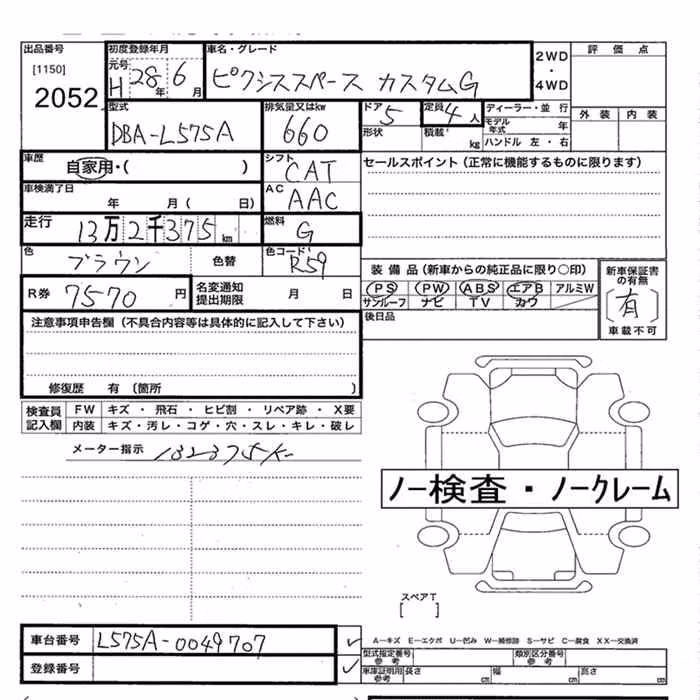 出品番号 初度登録年月 車名・グレード 評価点
[1150] 元号 H 28年 6月 ピクシススペース カスタムG 2WD・4WD
2052
型式 排気量又はkw ドア 定員 ディーラー・並行 外装 内装
DBA-L575A 660 5 4人 モデル年式 年
形状 積載 kg ハンドル 左・右
車歴 自家用・( ) シフト CAT セールスポイント(正常に機能するものに限ります)
車検満了日 年 月( 日) AC AAC
走行 13万2千375km 燃料 G
色 ブラウン 色替 色コード R59 装備品(新車からの純正品に限り○印) 新車保証書の有無
R券 7570円 名変通知提出期限 月 日 PS PW ABS エアB アルミW (有)
サンルーフ ナビ TV カワ 車載不可
注意事項申告欄(不具合内容等は具体的に記入して下さい) 後日品
修復歴 有(箇所 )
検査員記入欄 FW キズ・飛石・ヒビ割・リペア跡・X要
内装 キズ・汚レ・コゲ・穴・スレ・キレ・破レ
メーター指示 132375K
ノー検査・ノークレーム
スペアT
[ ]
車台番号 L575A-0049707 A―キズ E―エクボ U―凹み W―補修跡 S―サビ C―腐食 XX―交換済
型式指定番号 参考 類別区分番号 参考
登録番号 車庫証明用 参考 長さ cm 幅 cm 高さ cm